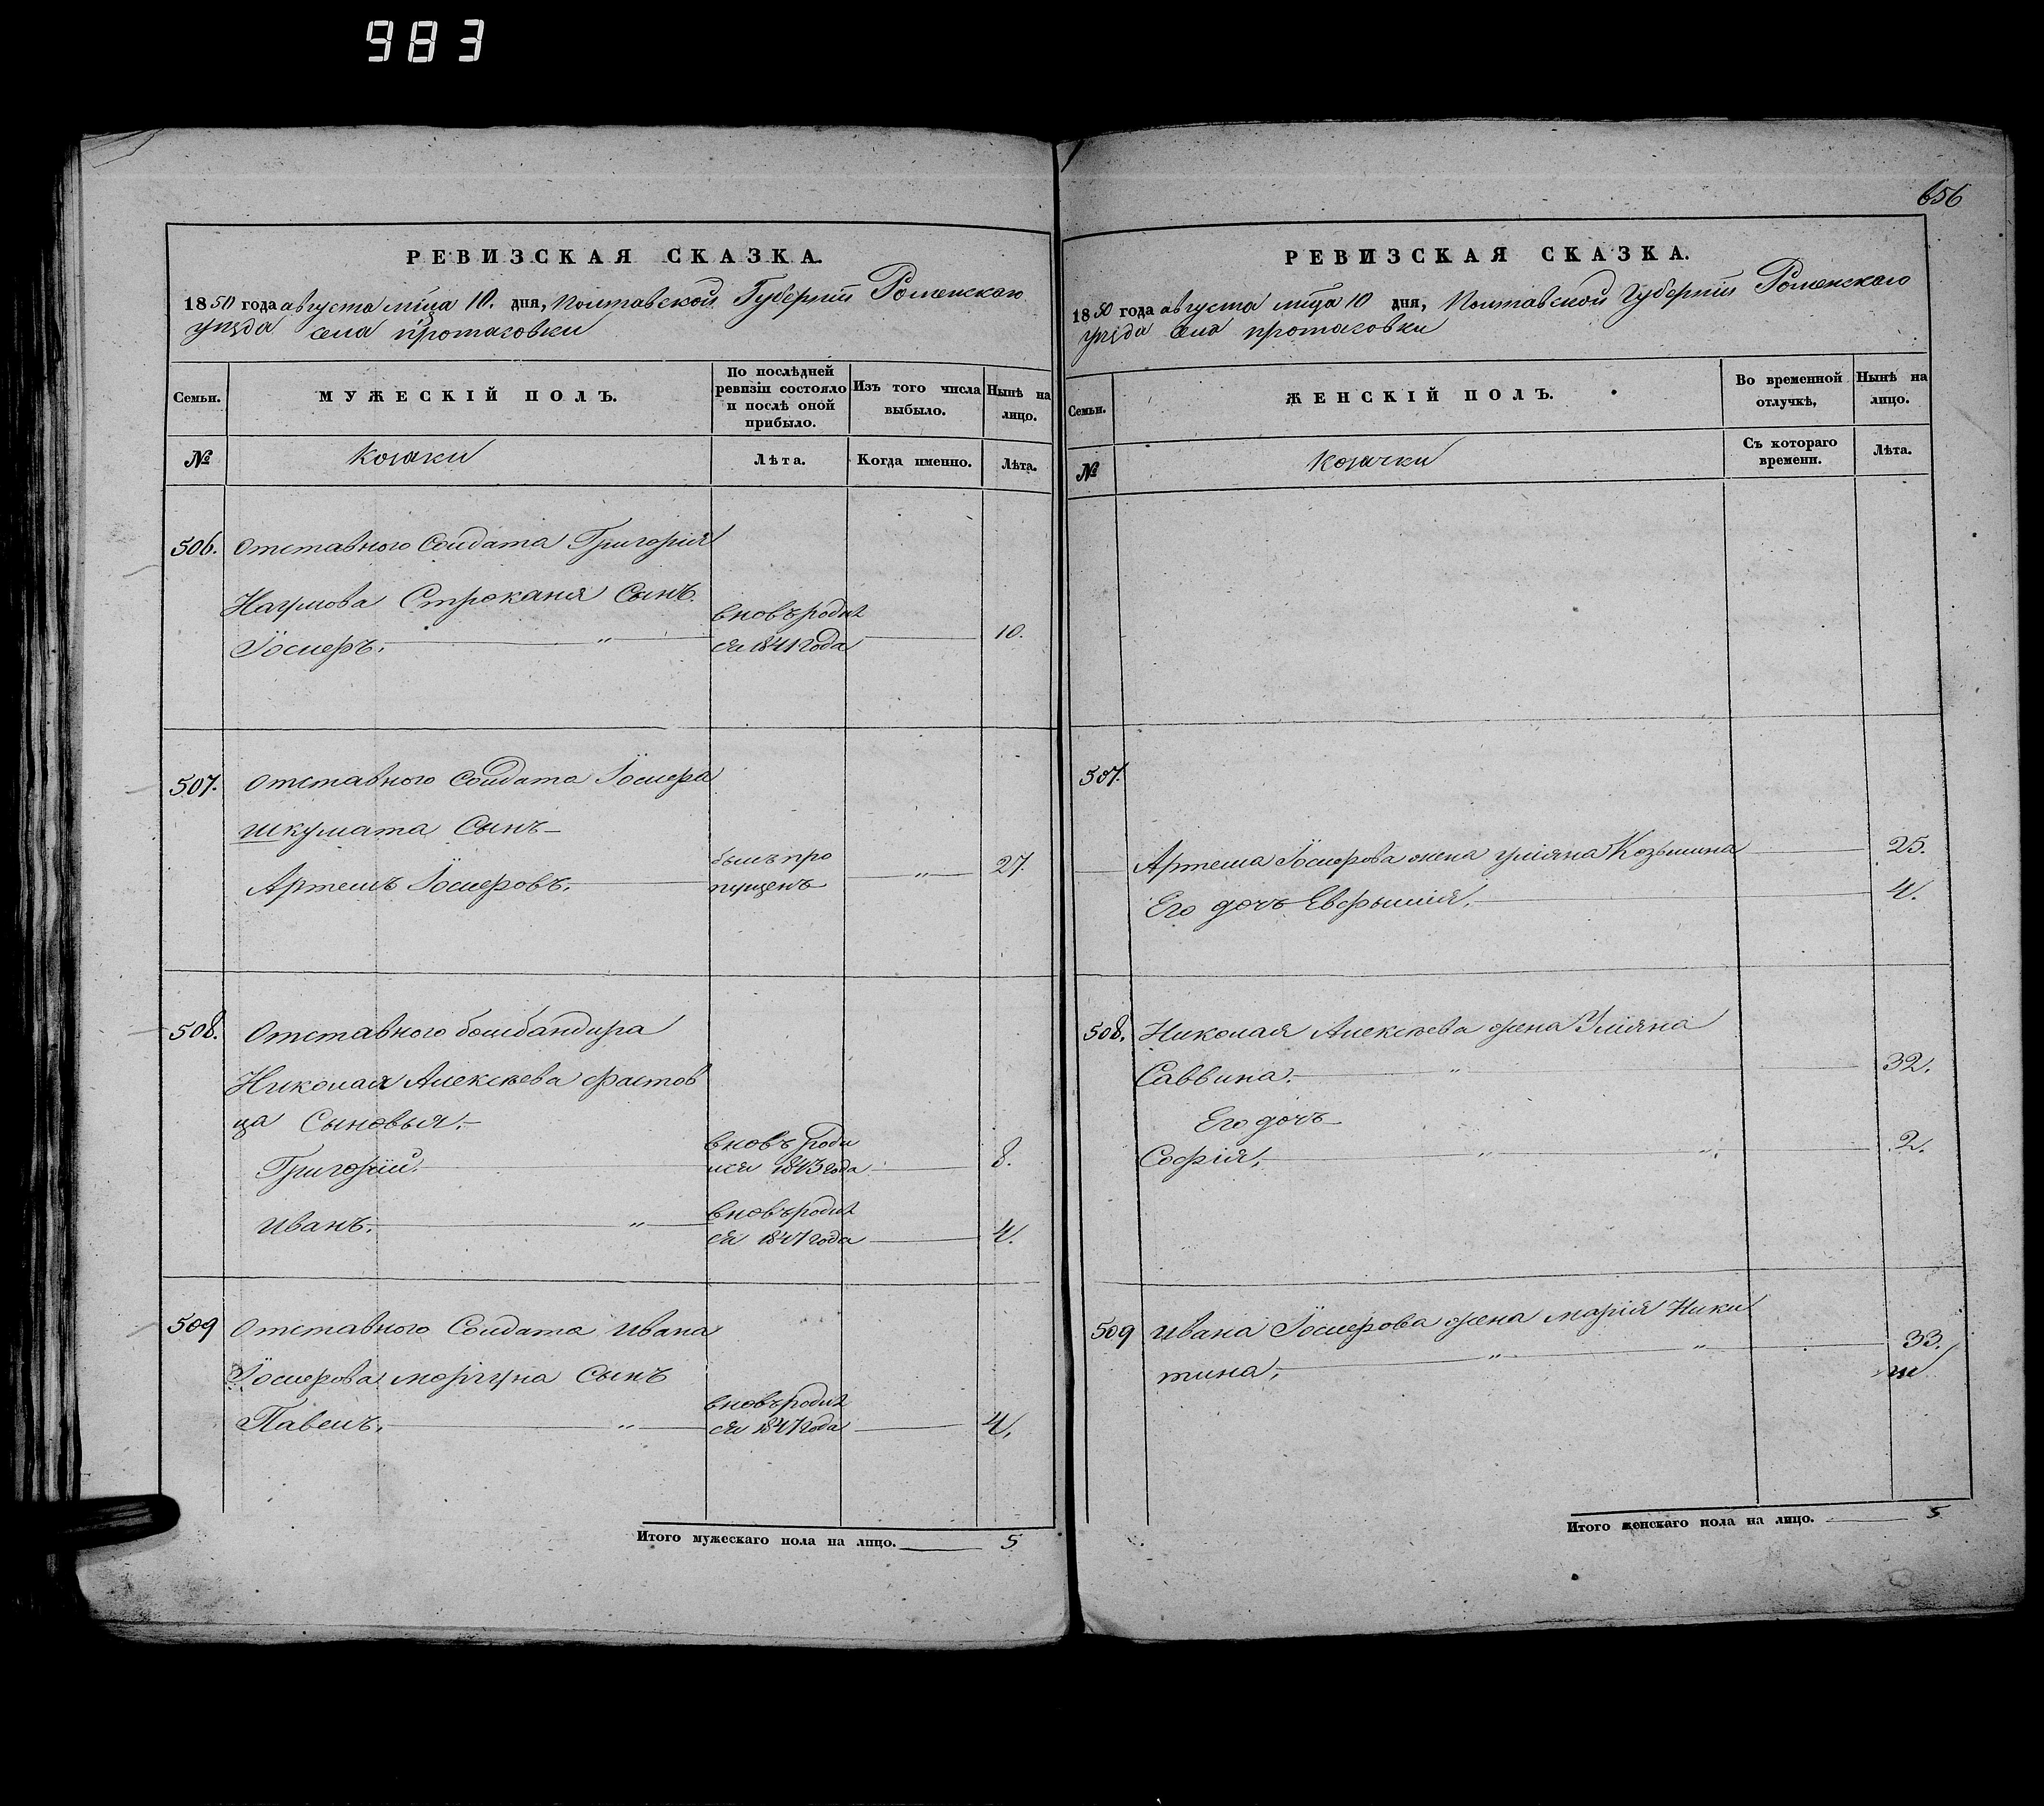 983
656
РЕВИЗСКАЯ СКАЗКА.
1850 года августа мца 10. дня, Полтавской Губернiи Роменскаго
уезда села протасовки
Семьи.
МУЖЕСКІЙ ПОЛЪ.
По послѣдней ревизіи состояло и послѣ оной прибыло.
Изъ того числа выбыло.
Нынѣ на лицо.
№
козаки
Лѣта.
Когда именно.
Лѣта.
506. Отставного Солдата Григорія
Наумова Строканя Сынъ.
вновъ родил
Іосиеръ. " ся 1841 года 10.
507. Отставного Солдата Іосиера
шкумата Сынъ
Артемъ Іосиеровъ. былъ про
пущенъ " 27.
508. Отставного бомбандира
Николая Алексѣева фастов
ца Сыновья.
Григорій. вновъ роди
лся 1843 года 8.
Иванъ. " вновъ родил
ся 1847 года 4.
509 Отставного Солдата Ивана
Іосиерова моргуна Сынъ
Павелъ. " вновъ родил
ся 1847 года 4.
Итого мужескаго пола на лицо. 5
РЕВИЗСКАЯ СКАЗКА.
1850 года августа мца 10 дня, Полтавской Губерніи Роменскаго
уезда села протасовки
Семьи.
ЖЕНСКІЙ ПОЛЪ.
Во временной отлучкѣ,
Нынѣ на лицо.
№
козачки
Съ котораго времени.
Лѣта.
507.
Артема Іосиерова жена уліяна Козьмина 25.
Его дочь Евфимія. 4.
508. Николая Алексѣева жена Уліяна
Саввина. " 32.
Его дочь
Софія. " " 2.
509 Ивана Іосиерова жена марія Ники
тина. " " 33.
Итого женскаго пола на лицо. 5